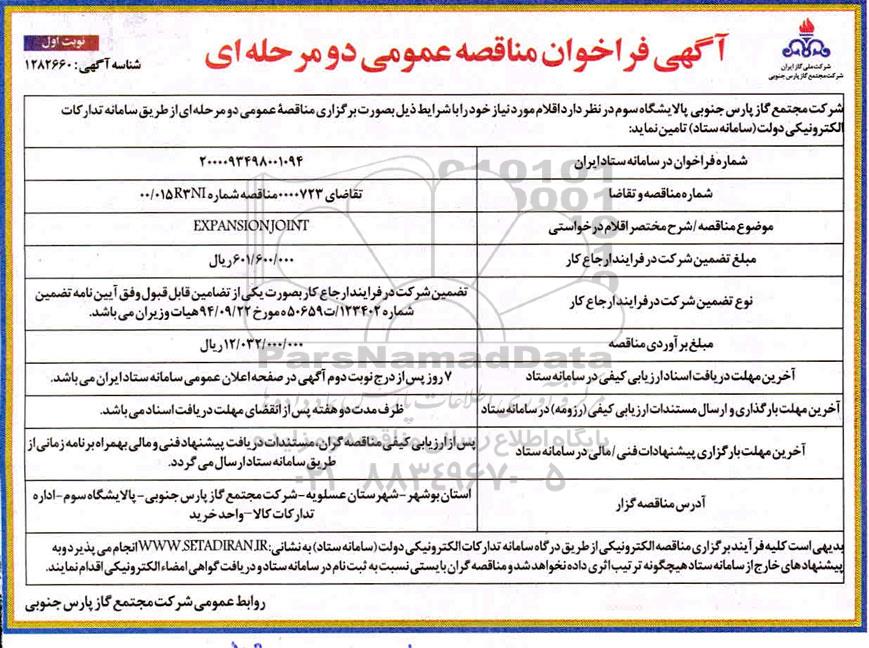 نوبت اول
شناسه آگهی: ۱۲۸۲۶۶۰
آگهی فراخوان مناقصه عمومی دو مرحله ای
شرکت ملی گاز ایران
شرکت مجتمع گاز پارس جنوبی
شرکت مجتمع گاز پارس جنوبی پالایشگاه سوم در نظر دارد اقلام مورد نیاز خود را با شرایط ذیل بصورت برگزاری مناقصۀ عمومی دو مرحله ای از طریق سامانه تدارکات
الکترونیکی دولت (سامانه ستاد) تامین نماید:
شماره فراخوان در سامانه ستاد ایران
۲۰۰۰۰۹۳۴۹۸۰۰۱۰۹۴
شماره مناقصه و تقاضا
تقاضای ۰۰۰۰۷۲۳مناقصه شماره ۰۰/۰۱۵R۳NI
موضوع مناقصه/شرح مختصر اقلام درخواستی
EXPANSION JOINT
مبلغ تضمین شرکت در فرایند ارجاع کار
۶۰۱/۶۰۰/۰۰۰ریال
نوع تضمین شرکت در فرایند ارجاع کار
تضمین شرکت در فرایند ارجاع کار بصورت یکی از تضامین قابل قبول وفق آیین نامه تضمین
شماره ۱۲۳۴۰۲/ت۵۰۶۵۹ه مورخ ۹۴/۰۹/۲۲ هیات وزیران می باشد.
مبلغ برآوردی مناقصه
۱۲/۰۳۲/۰۰۰/۰۰۰ریال
آخرین مهلت دریافت اسناد ارزیابی کیفی در سامانه ستاد
۷ روز پس از درج نوبت دوم آگهی در صفحه اعلان عمومی سامانه ستاد ایران می باشد.
آخرین مهلت بارگذاری و ارسال مستندات ارزیابی کیفی (رزومه) در سامانه ستاد
ظرف مدت دو هفته پس از انقضای مهلت دریافت اسناد می باشد.
آخرین مهلت بارگزاری پیشنهادات فنی/مالی در سامانه ستاد
پس از ارزیابی کیفی مناقصه گران، مستندات دریافت پیشنهاد فنی و مالی بهمراه برنامه زمانی از
طریق سامانه ستاد ارسال می گردد.
آدرس مناقصه گزار
استان بوشهر-شهرستان عسلویه-شرکت مجتمع گاز پارس جنوبی-پالایشگاه سوم-اداره
تدارکات کالا-واحد خرید
بدیهی است کلیه فرآیند برگزاری مناقصه الکترونیکی از طریق درگاه سامانه تدارکات الکترونیکی دولت (سامانه ستاد) به نشانی: WWW.SETADIRAN.IR انجام می پذیرد و به
پیشنهادهای خارج از سامانه ستاد هیچگونه ترتیب اثری داده نخواهد شد و مناقصه گران بایستی نسبت به ثبت نام در سامانه ستاد و دریافت گواهی امضاء الکترونیکی اقدام نمایند.
روابط عمومی شرکت مجتمع گاز پارس جنوبی
ParsNamadData
پایگاه اطلاع رسانی مناقصه و مزایده
۰۲۱-۸۸۳۴۹۶۷۰-۵